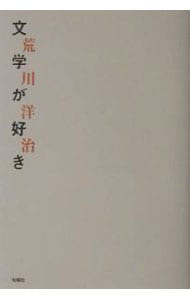 荒川洋治
文学が好き
旬報社